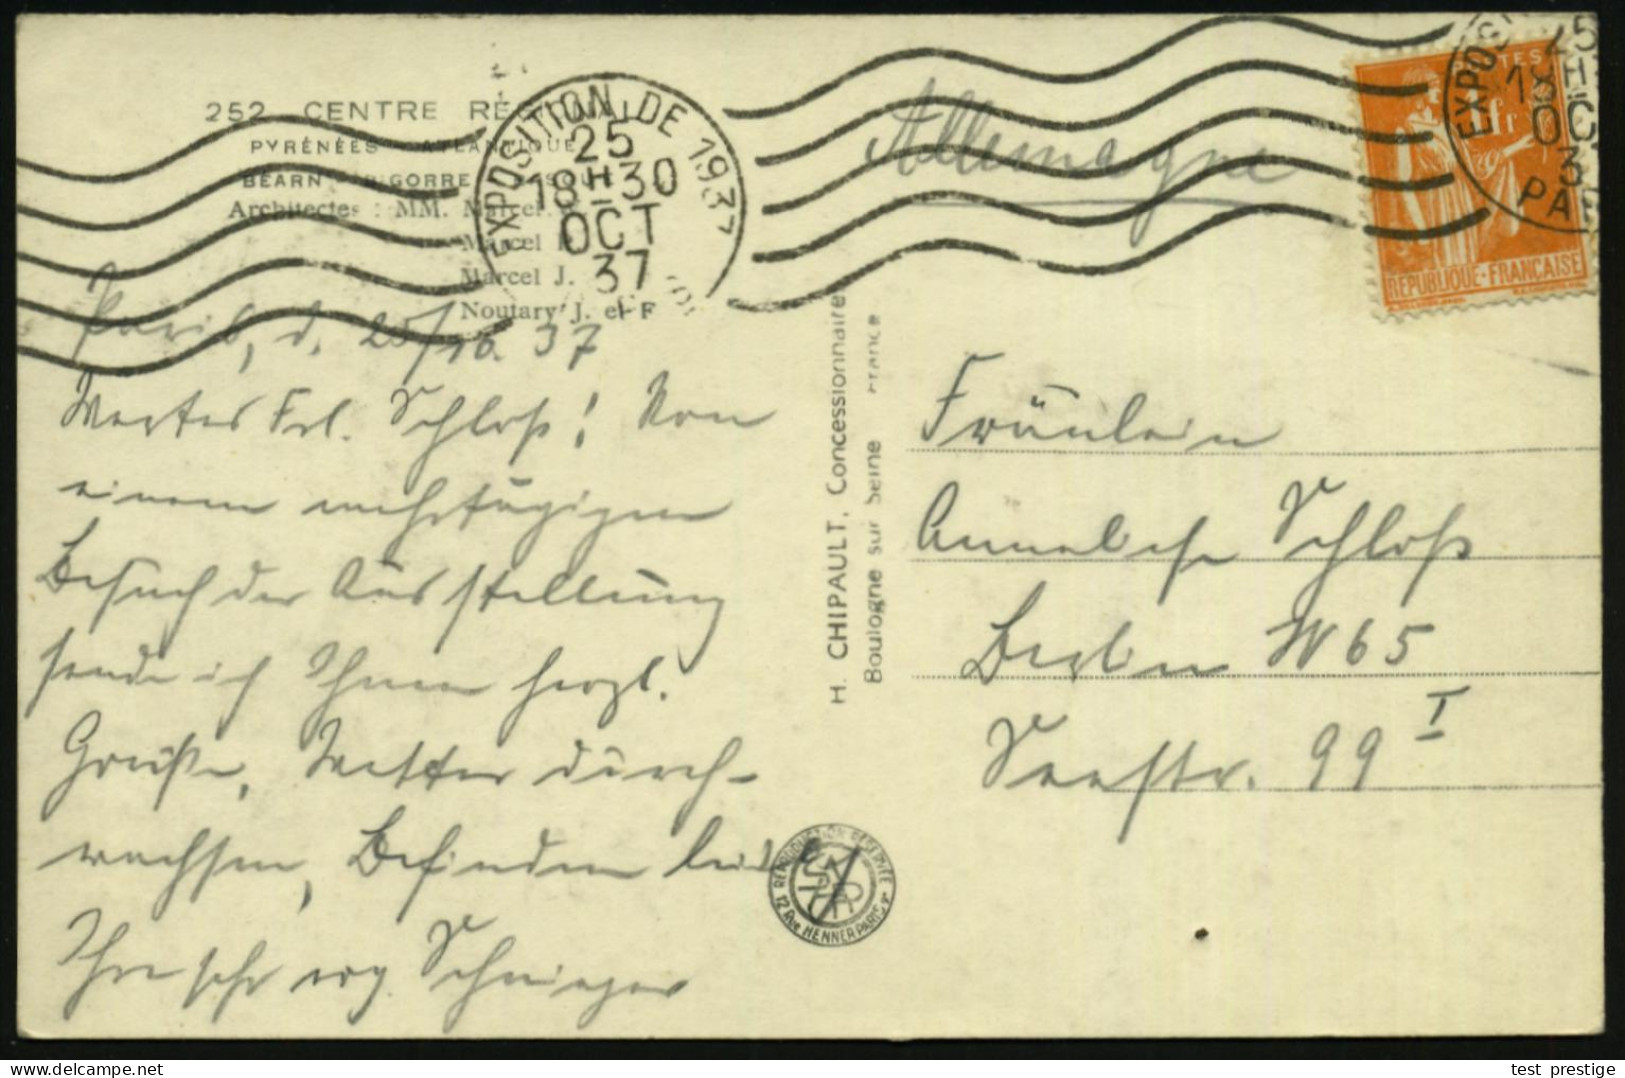 252 CENTRE RÉGIONAL
PYRÉNÉES - ATLANTIQUE
BÉARN - BIGORRE
Architectes : MM. Marcel
Marcel
Marcel J.
Noutary J. et F
EXPOSITION DE 1937
25
18H30
OCT
37
Allemagne
POSTES
1fr
REPUBLIQUE-FRANÇAISE
EXPOS
25
18H
OC
3
PA
Paris, d. 25/10. 37
Wertes Frl. Schloß! Von
einem mehrtägigen
Besuch der Ausstellung
sende ich Ihnen herzl.
Grüße, Wetter durch-
wachsen, Befinden
Ihr sehr erg.
H. CHIPAULT, Concessionnaire
Boulogne sur Seine France
Fräulein
Anneliese Schloß
Berlin N 65
Seestr. 99 I
REPRODUCTION RÉSERVÉE
12 Rue HENNER PARIS 9e
test prestige